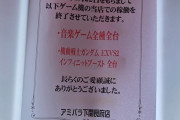 以下ゲーム機の当店での稼働を
終了させていただきます。
・音楽ゲーム全種全台
・機動戦士ガンダム EXVS2
インフィニットブースト 全台
長らくのご愛顧誠に
ありがとうございました。
アミパラ下関駅前店